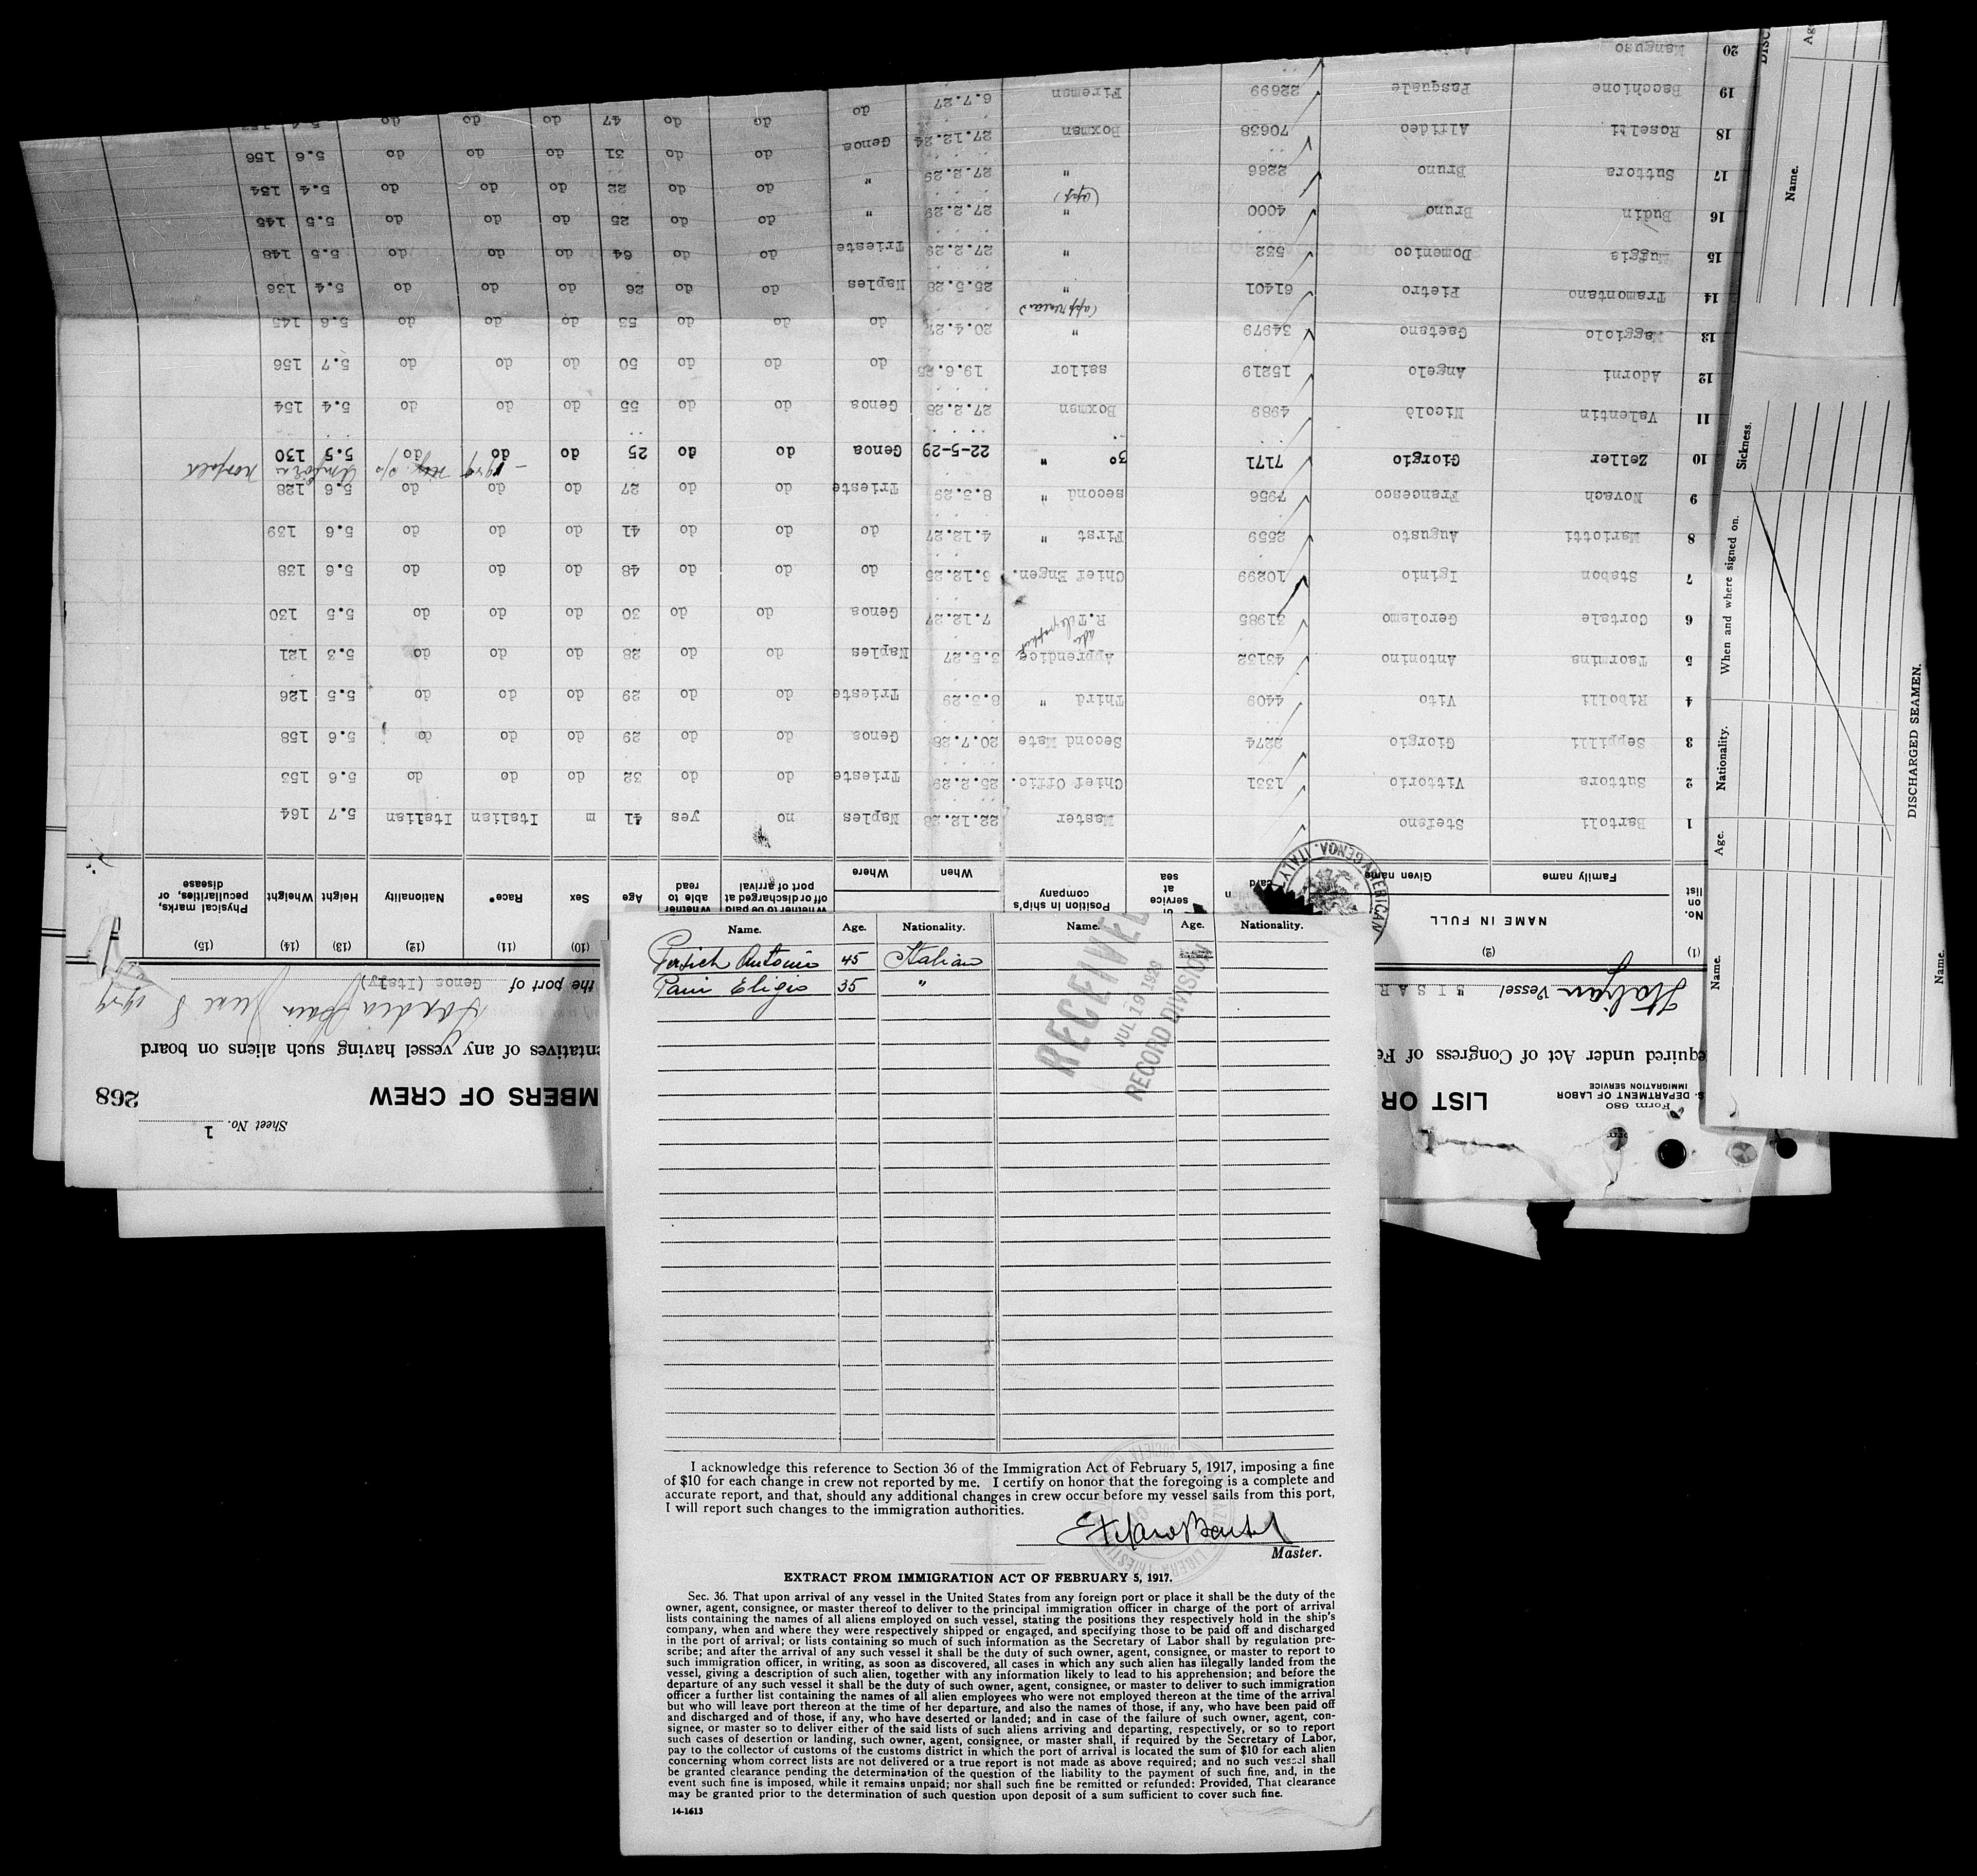 Name. Age. Nationality. Name. Age. Nationality.
Antonio 45 Italian
Eligio 35 "
RECEIVED
JUL 19 1929
RECORD DIVISION
I acknowledge this reference to Section 36 of the Immigration Act of February 5, 1917, imposing a fine
of $10 for each change in crew not reported by me. I certify on honor that the foregoing is a complete and
accurate report, and that, should any additional changes in crew occur before my vessel sails from this port,
I will report such changes to the immigration authorities.
Master.
EXTRACT FROM IMMIGRATION ACT OF FEBRUARY 5, 1917.
Sec. 36. That upon arrival of any vessel in the United States from any foreign port or place it shall be the duty of the
owner, agent, consignee, or master thereof to deliver to the principal immigration officer in charge of the port of arrival
lists containing the names of all aliens employed on such vessel, stating the positions they respectively hold in the ship's
company, when and where they were respectively shipped or engaged, and specifying those to be paid off and discharged
in the port of arrival; or lists containing so much of such information as the Secretary of Labor shall by regulation pre-
scribe; and after the arrival of any such vessel it shall be the duty of such owner, agent, consignee, or master to report to
such immigration officer, in writing, as soon as discovered, all cases in which any such alien has illegally landed from the
vessel, giving a description of such alien, together with any information likely to lead to his apprehension; and before the
departure of any such vessel it shall be the duty of such owner, agent, consignee, or master to deliver to such immigration
officer a further list containing the names of all alien employees who were not employed thereon at the time of the arrival
but who will leave port thereon at the time of her departure, and also the names of those, if any, who have been paid off
and discharged and of those, if any, who have deserted or landed; and in case of the failure of such owner, agent, con-
signee, or master so to deliver either of the said lists of such aliens arriving and departing, respectively, or so to report
such cases of desertion or landing, such owner, agent, consignee, or master shall, if required by the Secretary of Labor,
pay to the collector of customs of the customs district in which the port of arrival is located the sum of $10 for each alien
concerning whom correct lists are not delivered or a true report is not made as above required; and no such vessel shall
be granted clearance pending the determination of the question of the liability to the payment of such fine, and, in the
event such fine is imposed, while it remains unpaid; nor shall such fine be remitted or refunded: Provided, That clearance
may be granted prior to the determination of such question upon deposit of a sum sufficient to cover such fine.
14-1613
Form 680
DEPARTMENT OF LABOR
IMMIGRATION SERVICE
Sheet No. 1
LIST OR MBERS OF CREW 268
equired under Act of Congress of Fe ntatives of any vessel having such aliens on board
Italian Vessel "BISAR the port of Genoa (Italy) June 8 1929
(1) (2) (10) (11) (12) (13) (14) (15)
No. on list NAME IN FULL Family name Given name service at sea Position in ship's company When Where off or discharged at port of arrival able to read Age Sex Race* Nationality Height Wheight Physical marks, peculiarities, or disease
AMERICAN GENOA. ITALY
1 Bartoli Stefano Master 22.12.28 Naples no yes 41 m Italian Italian 5.7 164
2 Suttora Vittorio 1331 Chief Offic. 25.2.29 Trieste do do 32 do do do 5.6 153
3 Seppilli Giorgio 2274 Second Mate 20.7.28 Genoa do do 29 do do do 5.6 158
4 Ribolli Vito 4409 Third " 8.3.29 Trieste do do 29 do do do 5.5 126
5 Taormina Antonino 43132 Apprendice 3.5.27 Naples do do 28 do do do 5.3 121
6 Cortale Gerolamo 31985 R.T. 7.12.27 Genoa do do 30 do do do 5.5 130
7 Stabon Iginio 10299 Chief Engen. 6.12.25 do do do 48 do do do 5.6 138
8 Mariotti Augusto 2559 First " 4.12.27 do do do 41 do do do 5.6 139
9 Novach Francesco 7956 second " 8.3.29 Trieste do do 27 do do do 5.6 128
10 Zeller Giorgio 7171 3º " 22-5-29 Genoa do do 25 do do do 5.5 130
11 Valentin Nicolò 4989 Boxman 27.2.28 Genoa do do 55 do do do 5.4 154
12 Adorni Angelo 15219 sailor 19.6.25 do do do 50 do do do 5.7 156
13 Maggiolo Gaetano 34979 " 20.4.27 do do do 53 do do do 5.6 145
14 Tramontano Pietro 61401 " 25.5.28 Naples do do 26 do do do 5.4 136
15 Muggia Domenico 532 " 27.2.29 Trieste do do 64 do do do 5.5 148
16 Budin Bruno 4000 " 27.2.29 " do do 25 do do do 5.5 145
17 Suttora Bruno 2266 " 27.2.29 " do do 22 do do do 5.4 134
18 Roselli Alfideo 70638 Boxman 27.12.24 Genoa do do 31 do do do 5.6 156
19 Bacchione Pasquale 22699 Fireman 6.7.27 do do do 47 do do do
20 Manguso
Name. Age. Nationality. When and where signed on. Sickness.
DISCHARGED SEAMEN.
Name.
Name.